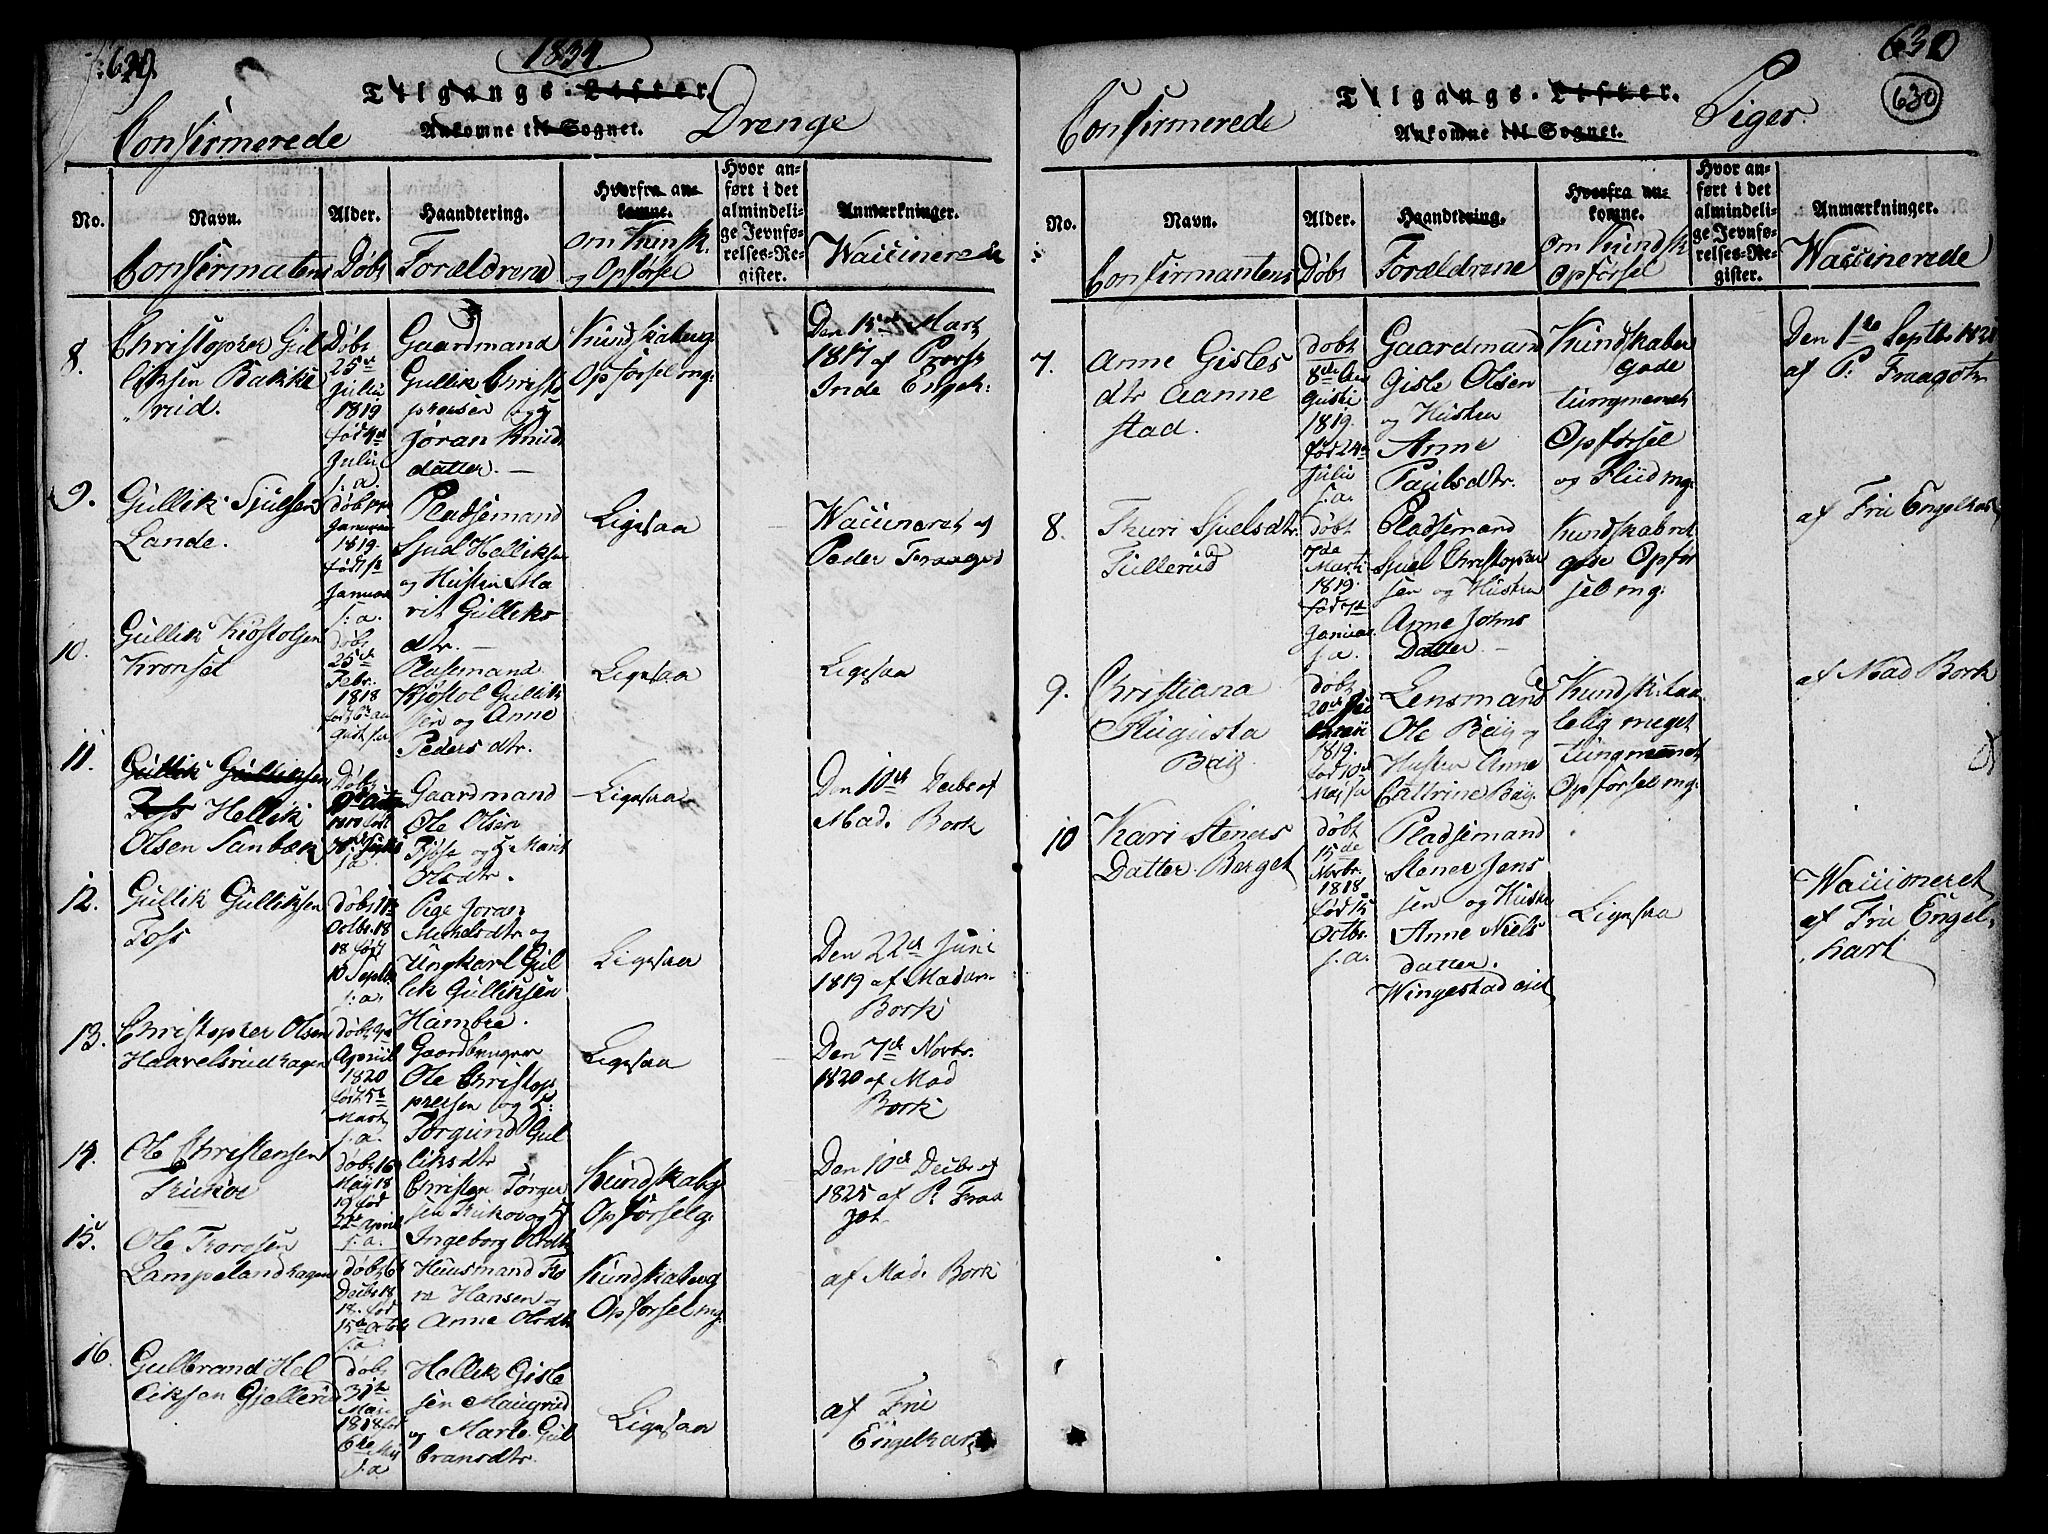 629.
1834.
Tilgangs-Lister.
Confirmerede Ankomne til Sognet. Drenge
No.
Navn.
Alder.
Haandtering.
Hvorfra ankomne.
Hvor anført i det almindelige Jevnførelses-Register.
Anmærkninger.
Confirmatens
Døbt
Forældrene
om Kunsk.
og Opførsel
Waccinerede
8.
Christopher Gul
liksen Bakke
rud.
Døbt
25de
Julii
1819
født 4de
Julii
s: a.
Gaardmand
Gullik Christo
phersen og H
Jøran Knuds
datter.
Kundskab og
Opførsel mg:
Den 15de Marts
1817 af Provst
inde Engelh:
9.
Gullik Sjulsen
Lande.
Døbt
Januari
1819.
født 1ste
Januar
s: a.
Pladsemand
Sjul Helliksen
og Husten Ma
rit Gulliks
dtr.
Ligesaa
Waccineret af
Peder Fraagot
10.
Gullik Kiøstolsen
Kronset
Døbt
25de
Febr.
1818
Pladsemand
Kjøstol Gullik
sen og Anne
Peders dtr.
Ligesaa
Ligesaa
11.
Gullik Gulliksen
Foss Hellik
Olsen Sanbæk
Døbt
s: a.
Gaardmand
Ole Olsen
og H Marit
Olsdtr.
Ligesaa
Den 10de Decbr af
Mad. Bork
12.
Gullik Gulliksen
Foss
Døbt 11te
Octbr. 18
18 født
10 Septbr
s: a.
Pige Joran
Mikkelsdtr og
Ungkarl Gul
lik Gulliksen
Hambre.
Ligesaa
Den 22de Juni
1819 af Madam
Bork
13.
Christopher Olsen
Haavelsrudhagen
Døbt 9de
April
1820
født 5te
Marts
s: a.
Gaardbruger
Ole Christop
phersen og H:
Torgund Gul
liksdtr
Ligesaa
Den 7de Novbr.
1820 af Mad
Bork
14.
Ole Christensen
Trukoe
Døbt 16
May 18
19 født
22de April
s: a.
Christen Torger
sen Trukov og H
Ingeborg Olsdtr
Kundskab g
Opførsel g:
Den 10de Decbr af
1825 af P. Fraa
got
15.
Ole Toresen
Lampelandhagen
døbt 6te
Decbr 18
født
15de Octob
s: a.
Huusmand To
re Hansen og
Anne Olsdtr
Kundskab og
Opførsel mg:
af Mad. Bork
16.
Gulbrand Hel
liksen Gjellerud
døbt
31te
Maii
1818 født
6te Maii
s: a
Hellik Gisle
sen Maugrud
og Marte Gul
bransdtr.
Ligesaa
af Fru
Engelhart
630
630
Tilgangs-Lister.
Confirmerede Ankomne til Sognet. Piger.
No.
Navn.
Alder.
Haandtering.
Hvorfra ankomne.
Hvor anført i det almindelige Jevnførelses-Register.
Anmærkninger.
Confirmantens
Døbt
Forældrene
Om Kundsk
Opførsel
Waccinerede
7.
Anne Gisles
dtr Aanne
stad.
døbt
8de Au
gusti
1819.
født 24de
Julii
s: a.
Gaardmand
Gisle Olsen
og Husten
Anne
Paulsdtr.
Kundskaber
gode
tungnemet
Opførsel
og Fliid mg:
Den 1te Septbr. 1820
af P: Fraagot
8.
Thuri Sjulsdtr.
Fullerud
Døbt
7de
Marti
1819.
født
Januar.
s: a.
Pladsemand
Sjul Christopher
sen og Husten
Anne Johns
Datter
Kundskab
gode Opfør
sel mg:
af Fru Engelhart
9.
Christiana
Augusta
Baÿ
døbt
20de
1819.
født 10de
Maj sa
Lensmand
Ole Baÿ og
Husten Anne
Cattrine Baÿ.
Kundsk: taa
lelig meget
tungnemet
Opførsel mg:
af Mad Bork
10
Kari Steners
Datter Berget
døbt
15de
Novbr.
1818
født 15
Octbr.
s: a.
Pladsemand
Stener Jens
sen og Husten
Anne Niels
datter.
Wingestad eiet
Ligesaa
Waccineret
af Fru Engel
hart